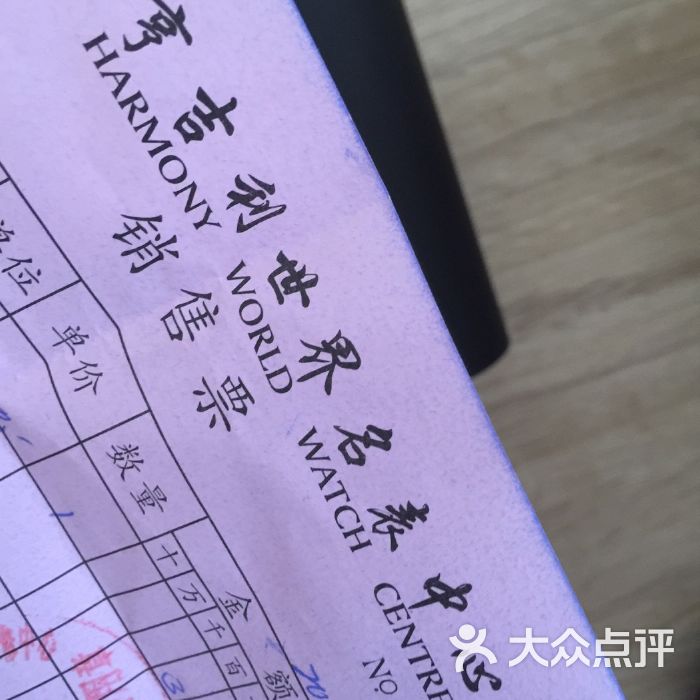 亨吉利世界名表中心
HARMONY WORLD WATCH CENTRE
销售票
NO
单位 单价 数量 金额
十 万 千 百
大众点评